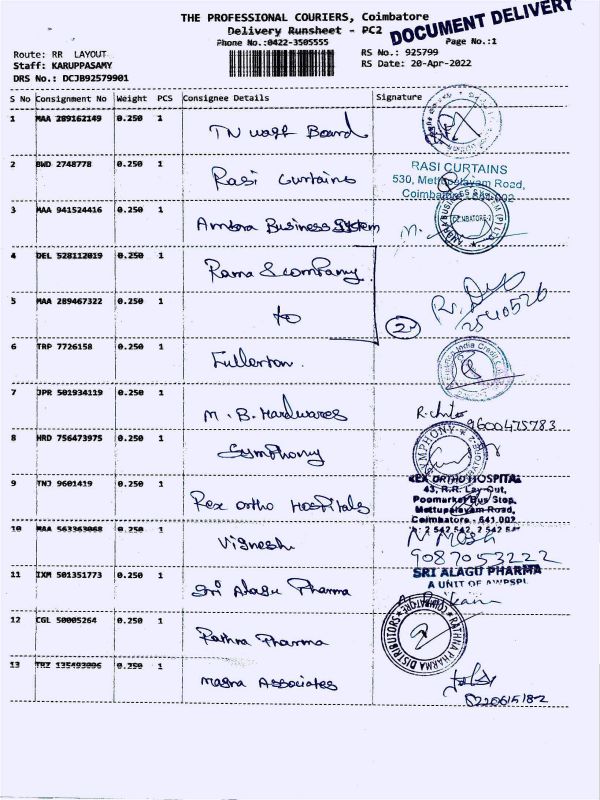 THE PROFESSIONAL COURIERS, Coimbatore
Delivery Runsheet - PC2
DOCUMENT DELIVERY
Phone No.:0422-3505555
Page No.:1
Route: RR LAYOUT
RS No.: 925799
Staff: KARUPPASAMY
RS Date: 20-Apr-2022
DRS No.: DCJB92579901
S No Consignment No Weight PCS Consignee Details Signature
1 MAA 289162149 0.250 1 TN Board
2 BWD 2748778 0.250 1 Rasi Curtains
RASI CURTAINS
530, Mettupalayam Road,
Coimbatore - 641 002
3 MAA 941524416 0.250 1 Business System
4 DEL 528112019 0.250 1 Rama & company
5 MAA 289467322 0.250 1 to
2
2540526
6 TRP 7726158 0.250 1 Fullerton
7 JPR 501934119 0.250 1 M. B. Hardwares
9600475783
8 HRD 756473975 0.250 1 Symphony
SYMPHONY
9 TNJ 9601419 0.250 1 Rex Ortho Hospitals
REX ORTHO HOSPITAL
43, R.R. Lay-Out,
Poomarket Bus Stop,
Mettupalayam Road,
Coimbatore - 641 002
10 MAA 563363068 0.250 1 Vignesh
9087053222
11 IXM 501351773 0.250 1 Sri Alagu Pharma
SRI ALAGU PHARMA
A UNIT OF AWPSPL
12 CGL 50005264 0.250 1 Rathna Pharma
RATHNA PHARMA DISTRIBUTORS COIMBATORE
13 TRZ 135493096 0.250 1 Magna Associates